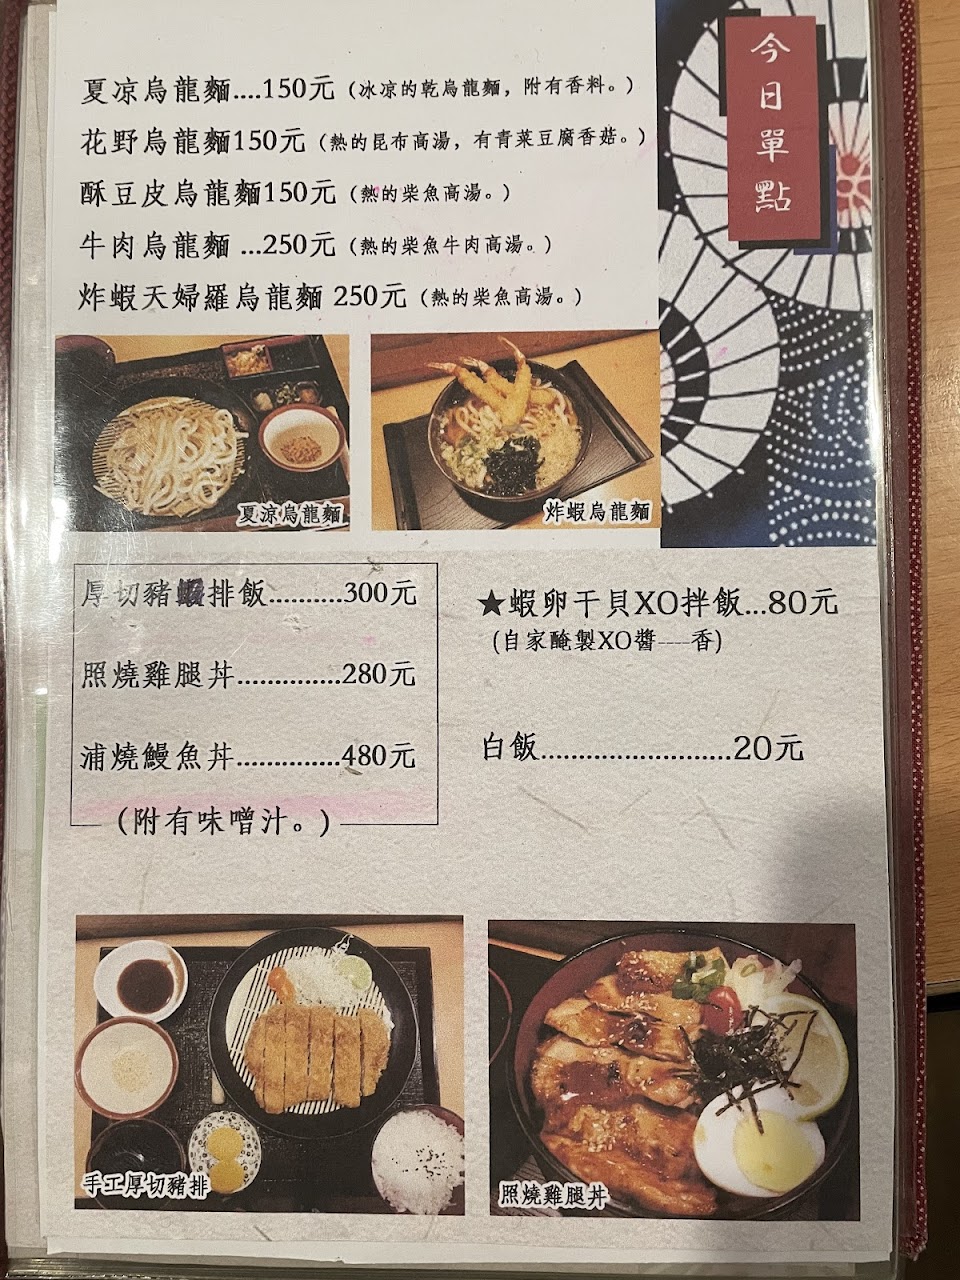 今日單點
夏凉烏龍麵....150元 (冰凉的乾烏龍麵，附有香料。)
花野烏龍麵150元 (熱的昆布高湯，有青菜豆腐香菇。)
酥豆皮烏龍麵150元 (熱的柴魚高湯。)
牛肉烏龍麵 ...250元 (熱的柴魚牛肉高湯。)
炸蝦天婦羅烏龍麵 250元 (熱的柴魚高湯。)
夏涼烏龍麵
炸蝦烏龍麵
厚切豬排飯..........300元
照燒雞腿丼...............280元
浦燒鰻魚丼...............480元
(附有味噌汁。)
★蝦卵干貝XO拌飯...80元
(自家醃製XO醬----香)
白飯........................20元
手工厚切豬排
照燒雞腿丼